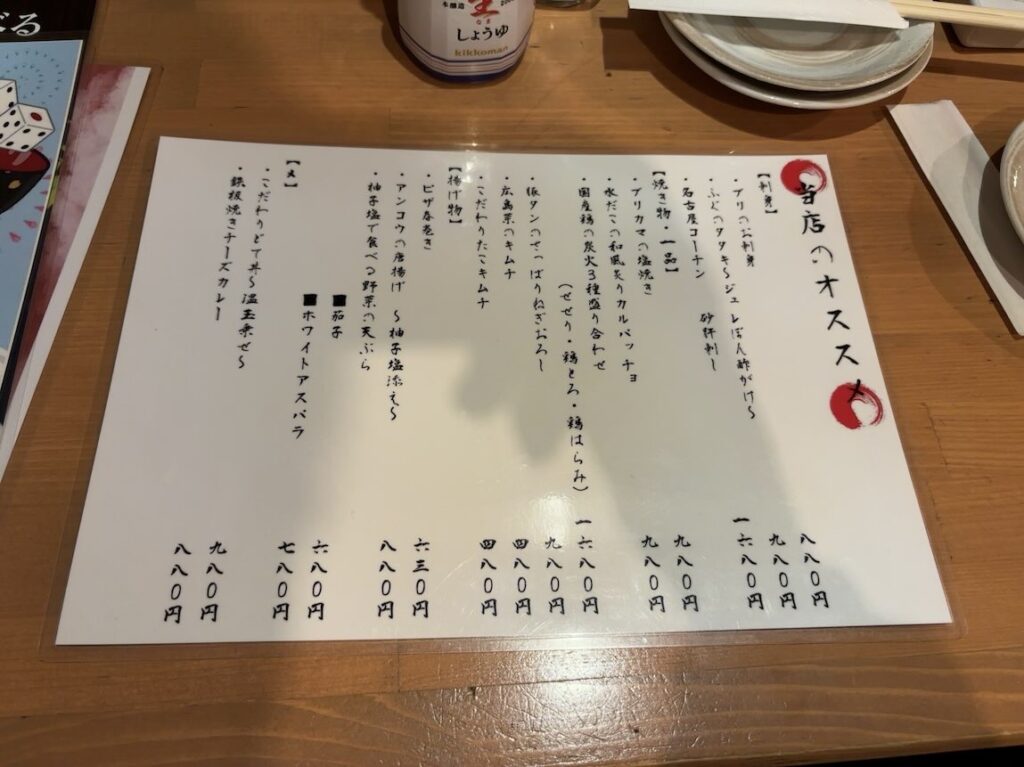 当店のオススメ
【刺身】
・ブリのお刺身 八八〇円
・ふぐのタタキ〜ジュレぽん酢がけ〜 九八〇円
・名古屋コーチン 砂肝刺し 一六八〇円
【焼き物・一品】
・ブリカマの塩焼き 九八〇円
・水だこの和風炙りカルパッチョ 九八〇円
・国産鶏の炭火3種盛り合わせ 一六八〇円
(せせり・鶏とろ・鶏はらみ)
・豚タンのさっぱりねぎおろし 九八〇円
・広島菜のキムチ 四八〇円
・こだわりたこキムチ 四八〇円
【揚げ物】
・ピザ春巻き 六三〇円
・アンコウの唐揚げ 〜柚子塩添え〜 八八〇円
・柚子塩で食べる野菜の天ぷら
■茄子 六八〇円
■ホワイトアスパラ 七八〇円
【〆】
・こだわりどて丼〜温玉乗せ〜 九八〇円
・鉄板焼きチーズカレー 八八〇円
生
しょうゆ
kikkoman